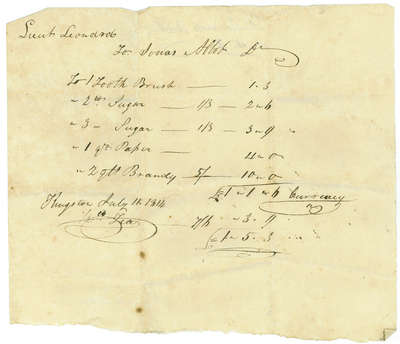 Lieut Leonard
To Jonas Abbt Dr
To 1 Tooth Brush — 1 . 3
" 2 lb Sugar — 1/3 — 2 " 6
" 3 " Sugar — 1/3 — 3 " 9 "
" 1 qr Paper — 4 " 0 "
" 2 qts Brandy 5/ — 10 " 0 "
£1 " 1 " 6 Currency
Kingston July 11 1814
Tea — 7/6 " 3 " 9
£1 " 5 " 3